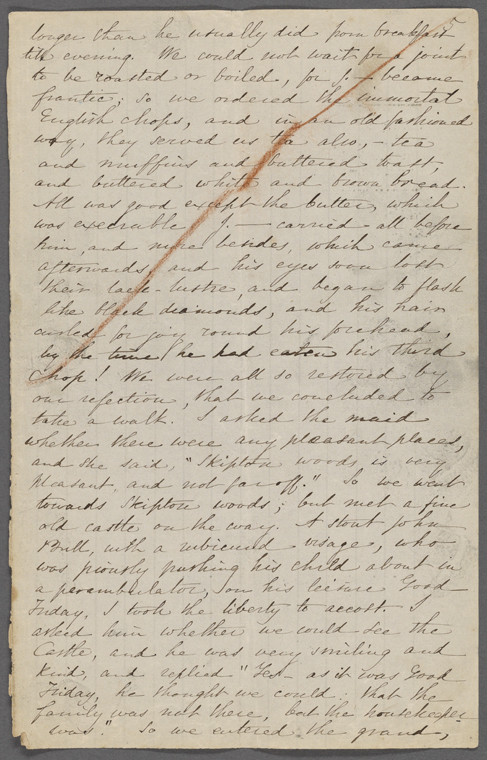 5
longer than he usually did from breakfast
till evening. We could not wait for a joint
to be roasted or boiled, for J. — became
frantic; so we ordered the immortal
English chops, and in an old fashioned
way, they served us tea also, – tea
and muffins and buttered toast,
and buttered white and brown bread.
All was good except the butter, which
was execrable. J. — carried all before
him, and more besides, which came
afterwards, and his eyes soon lost
their lack-lustre, and began to flash
like black diamonds, and his hair
curled for joy round his forehead,
by the time he had eaten his third
chop! We were all so restored by
our refection, that we concluded to
take a walk. I asked the maid
whether there were any pleasant places,
and she said, "Skipton woods is very
pleasant, and not far off." So we went
towards Skipton woods; but met a fine
old castle on the way. A stout John
Bull, with a rubicund visage, who
was piously pushing his child about in
a perambulator, on his leisure Good
Friday, I took the liberty to accost. I
asked him whether we could see the
Castle, and he was very smiling and
kind, and replied "Yes – as it was Good
Friday, he thought we could: that the
family was not there, but the housekeeper
was." So we entered the grand,